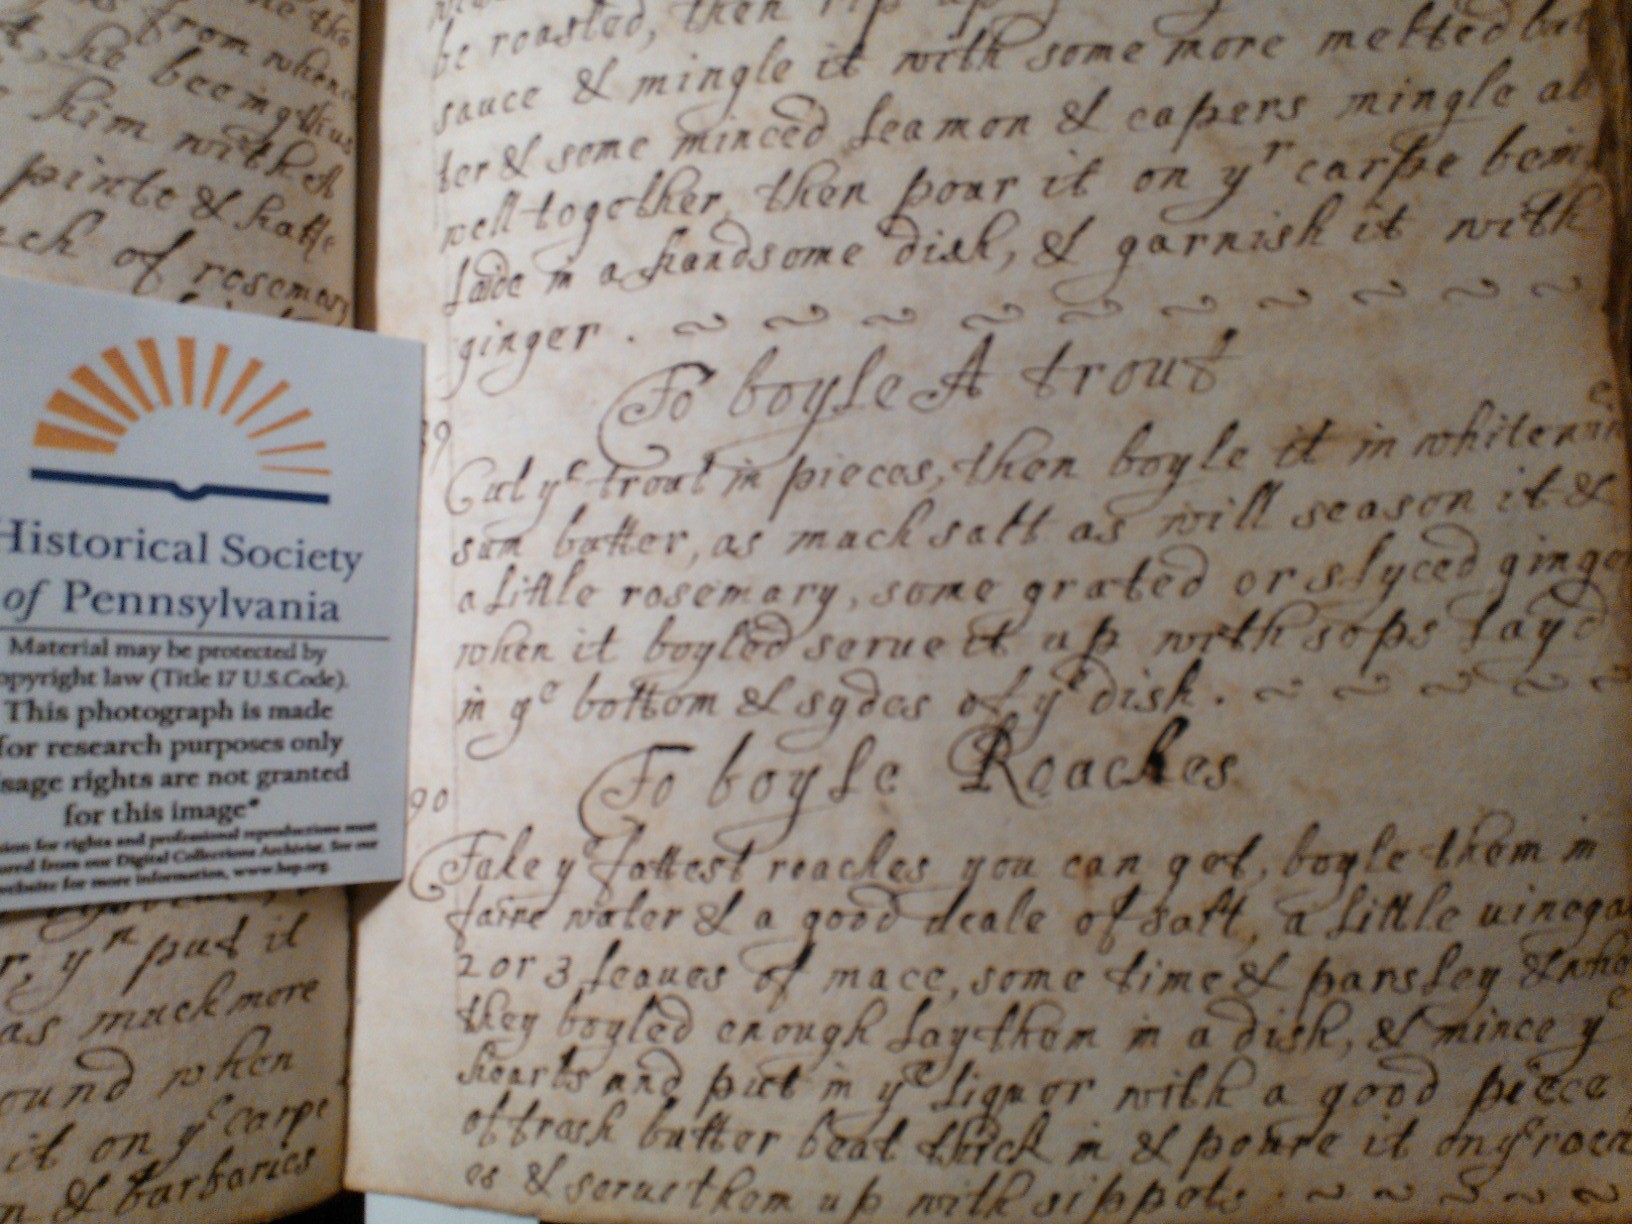 from whence
, he beeing thus
him with A
pinte & halfe
of rosemary
Historical Society
of Pennsylvania
Material may be protected by
opyright law (Title 17 U.S.Code).
This photograph is made
for research purposes only
sage rights are not granted
for this image*
tion for rights and professional reproductions must
ured from our Digital Collections Archivist. See our
website for more information, www.hsp.org.
r, yn put it
as much more
ound when
it on ye carpe
n & barbaries
be roasted, then rip up
sauce & mingle it with some more melted but
ter & some minced leamon & capers mingle al
well together, then pour it on yr carpe bein
laide in a handsome dish, & garnish it with
ginger . ~ ~ ~ ~ ~ ~ ~ ~ ~
To boyle A trout
89
Cut ye trout in pieces, then boyle it in white wine
sum butter, as much salt as will season it &
a little rosemary, some grated or slyced ginger
when it boyled serue it up with sops layd
in ye bottom & sydes of ye dish . ~ ~ ~ ~ ~
To boyle Roaches
90
Take ye fattest roaches you can get, boyle them in
faire water & a good deale of salt, a little uinegar
2 or 3 leaues of mace, some time & parsley & when
they boyled enough lay them in a dish, & mince ye
hearbs and put in ye liquor with a good piece
of frash butter beat thick in & poure it on ye roch
es & serue them up with sippets . ~ ~ ~ ~ ~